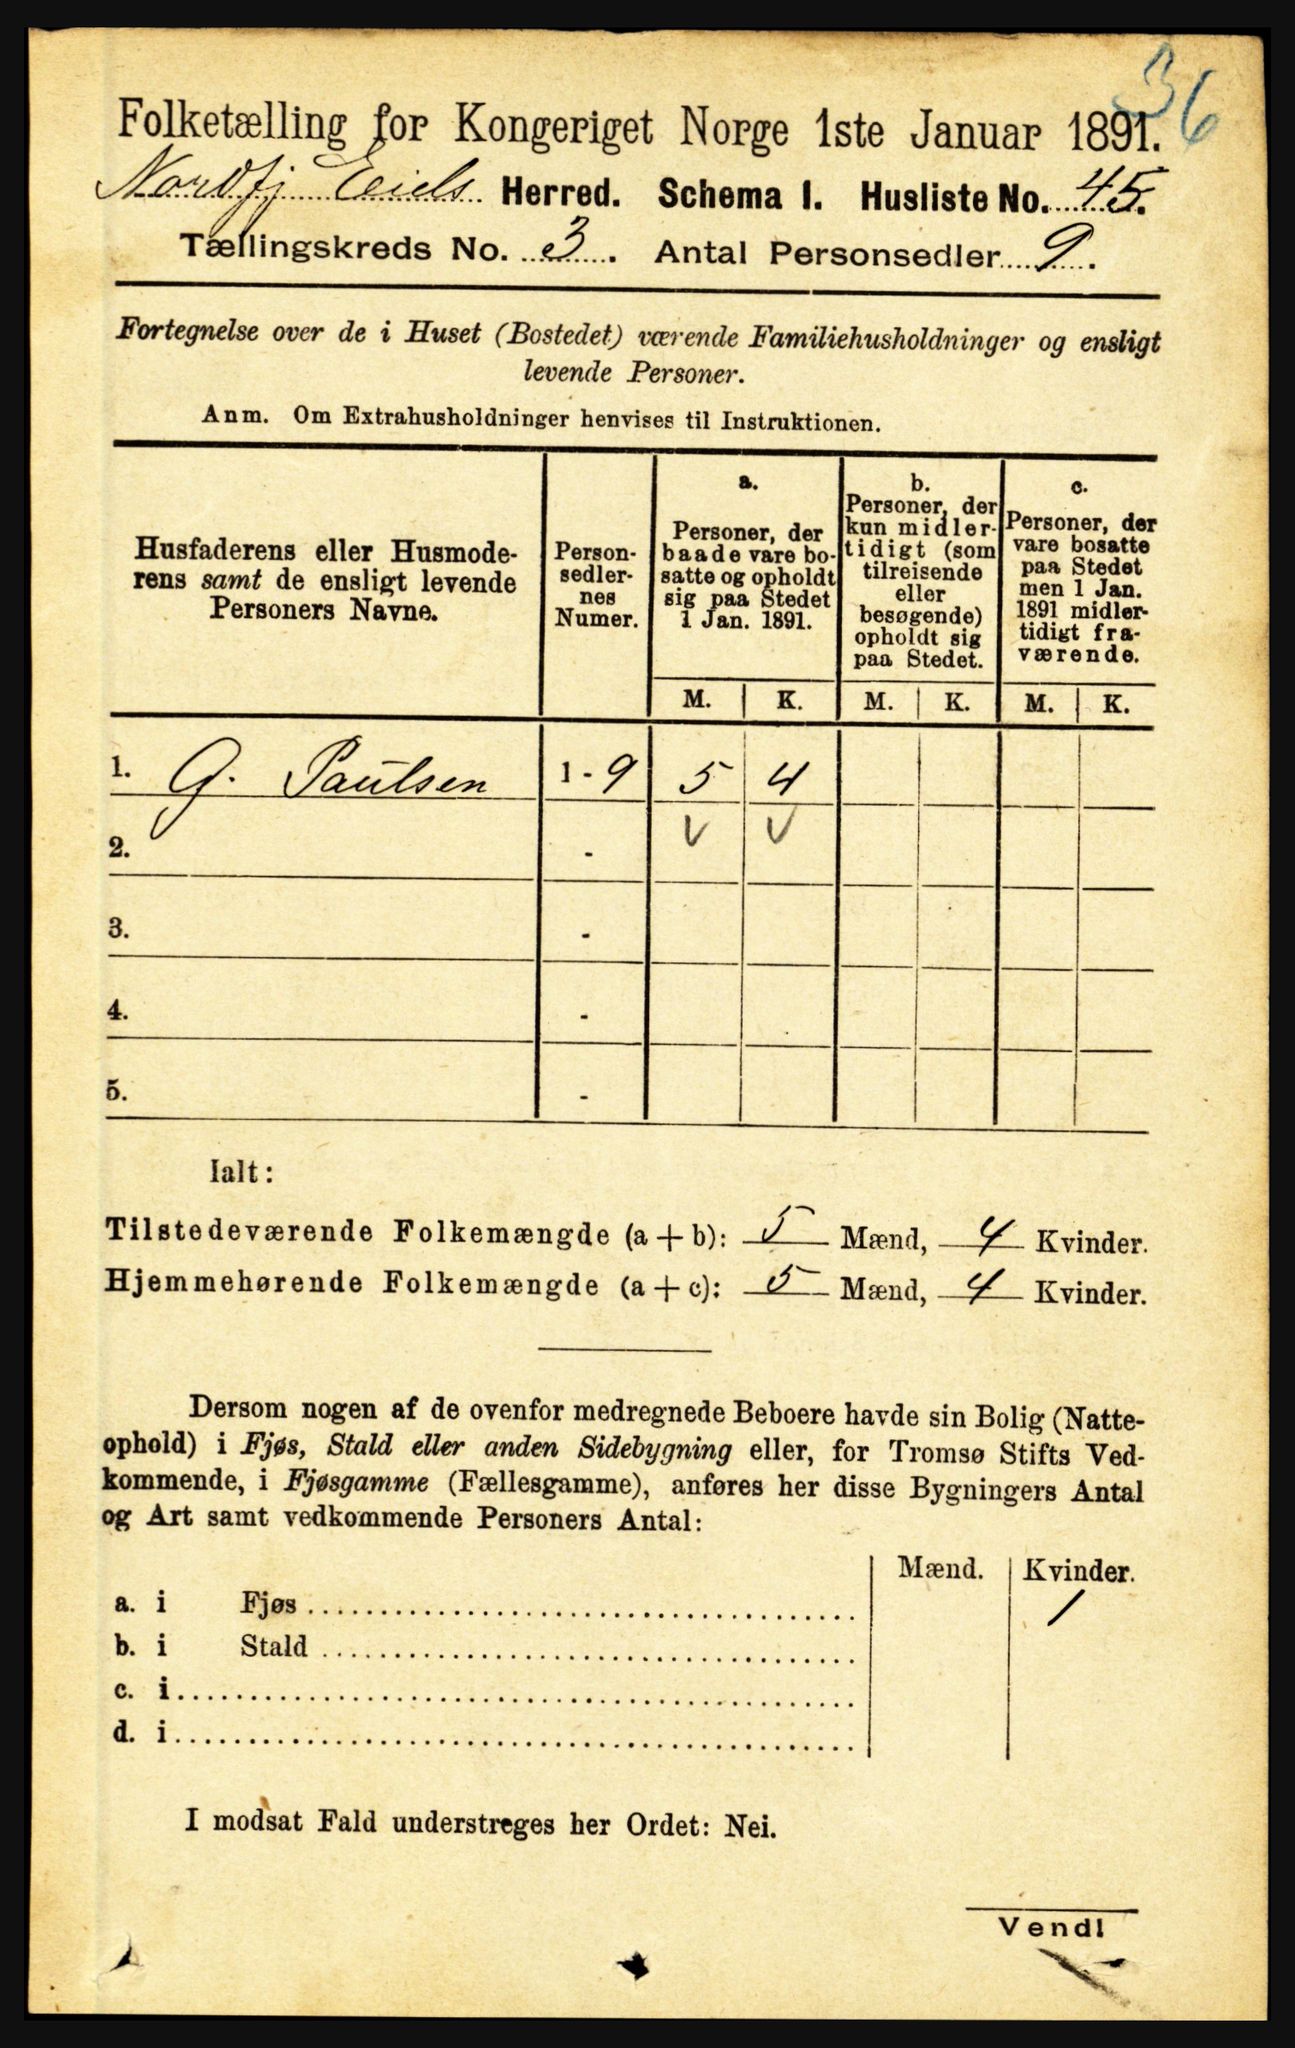 36
Folketælling for Kongeriget Norge 1ste Januar 1891.
Nordfj. Eids Herred. Schema I. Husliste No. 45.
Tællingskreds No. 3. Antal Personsedler 9.
Fortegnelse over de i Huset (Bostedet) værende Familiehusholdninger og ensligt
levende Personer.
Anm. Om Extrahusholdninger henvises til Instruktionen.
Husfaderens eller Husmode-
rens samt de ensligt levende
Personers Navne.
Person-
sedler-
nes
Numer.
a.
Personer, der
baade vare bo-
satte og opholdt
sig paa Stedet
1 Jan. 1891.
b.
Personer, der
kun midler-
tidigt (som
tilreisende
eller
besøgende)
opholdt sig
paa Stedet.
c.
Personer, der
vare bosatte
paa Stedet
men 1 Jan.
1891 midler-
tidigt fra-
værende.
M. K. M. K. M. K.
1. G. Paulsen 1 - 9 5 4
2. -
3. -
4. -
5. -
Ialt:
Tilstedeværende Folkemængde (a + b): 5 Mænd, 4 Kvinder.
Hjemmehørende Folkemængde (a + c): 5 Mænd, 4 Kvinder.
Dersom nogen af de ovenfor medregnede Beboere havde sin Bolig (Natte-
ophold) i Fjøs, Stald eller anden Sidebygning eller, for Tromsø Stifts Ved-
kommende, i Fjøsgamme (Fællesgamme), anføres her disse Bygningers Antal
og Art samt vedkommende Personers Antal:
Mænd. Kvinder.
a. i Fjøs 1
b. i Stald
c. i
d. i
I modsat Fald understreges her Ordet: Nei.
Vend!